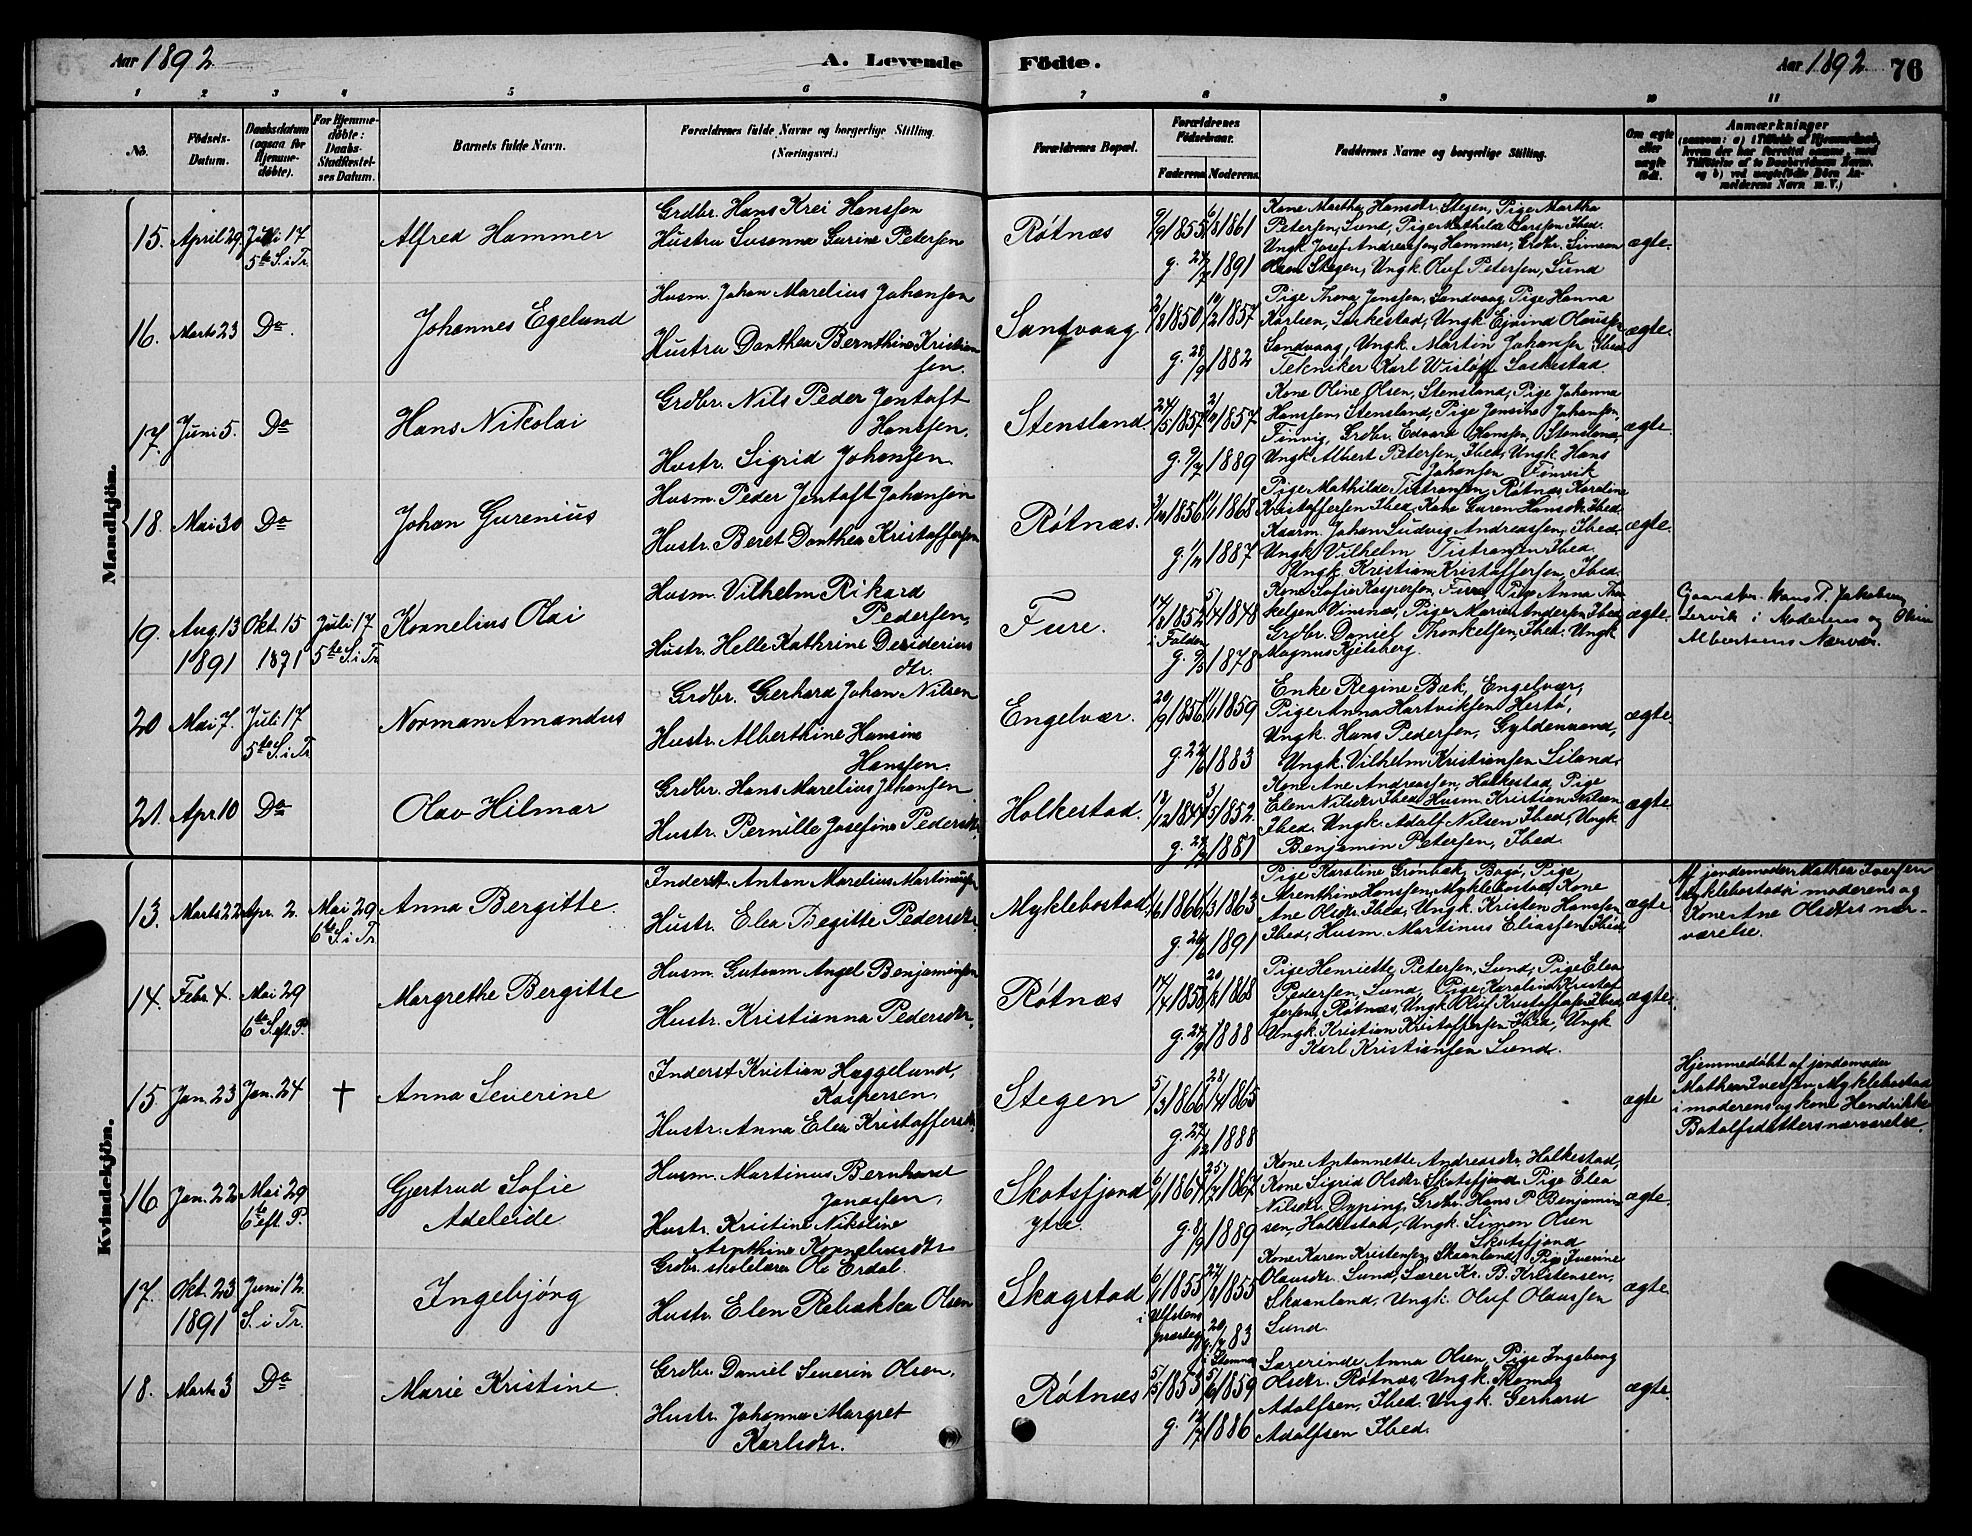 Aar 1892 A. Levende Födte. Aar 1892. 76
1 2 3 4 5 6 7 8 9 10 11
No. Födsels-Datum. Daabsdatum (ogsaa for Hjemme-döbte). For Hjemme-döbte: Daabs-Stadfæstel-ses Datum. Barnets fulde Navn. Forældrenes fulde Navne og borgerlige Stilling. (Næringsvei.) Forældrenes Bopæl. Forældrenes Födselsaar. Faderens Moderens. Faddernes Navne og borgerlige Stilling. Om ægte eller uægte födt. Anmærkninger
Mandkjön.
15. April 29. Juli 17 5te S. i Tr. Alfred Hammer
Grdbr. Hans Krei Hanssen
Hustru Susanna Gurine Petersen
Røtnæs 9/9 1855 6/8 1861
g. 27/7 1891
Kone Martha Hansdtr. Stegen, Pige Martha
Petersen, Sund, Pige Mathilde Larssen Ibed.
Ungk. Josef Andreassen, Hammer, Grdbr. Simeon
Olsen Stegen, Ungk. Oluf Petersen, Sund
ægte.
16. Marts 23 Do. Johannes Egelund
Husm. Johan Marelius Johansen
Hustru Danthea Bernthine Kristian
sen.
Sandvaag 2/3 1850 10/2 1857
g. 28/9 1882
Pige Thona Jenssen, Sandvaag, Pige Hanna
Karlsen, Laskestad, Ungk. Ejvind Olaussen
Sandvaag, Ungk. Martin Johansen, Ibed.
Tekniker Karl Wisløff Laskestad.
ægte.
17. Juni 5. Do Hans Nikolai
Grdbr. Nils Peder Jentoft
Hanssen.
Hustr. Sigrid Johansen.
Stensland. 24/5 1857 2/9 1857
g. 9/7 1889
Kone Oline Olsen, Stensland, Pige Johanna
Hanssen, Stensland, Pige Jensine Johansen,
Finvig, Grdbr. Edvard Hanssen, Stensland,
Ungk. Albert Petersen, Ibed, Ungk. Hans
Johansen Finvik
ægte.
18. Mai 30 Do Johan Gurenius
Husm. Peder Jentoft Johansen
Hustr. Beret Danthea Kristoffersen
Røtnæs. 1856 11/1 1868
g. 1887
Pige Mathilde Tistransen, Røtnæs, Karoline
Kristoffersen Ibed, Kone Guren Hansdtr. Ibed.
Kaarm. Johan Ludvig Andreassen, Ibed.
Ungk. Vilhelm Tistransen Ibed.
Ungk. Kristian Kristoffersen, Ibed.
ægte.
19. Aug. 13 1891 Okt. 15 1891 Juli 17 5te S. i Tr. Kornelius Olai
Husm. Vilhelm Rikard
Pedersen,
Hustr. Helle Kathrine Desiderius
dtr.
Fure. 1852 i Folden 5/4 1848
g. 1878
Kone Sofie Kaspersen, Furre, Pige Anna Thor
kelsen Vinsnæs, Pige Marie Andersen, Ibed.
Grdbr. Daniel Thorkelsen, Ibed. Ungk.
Magnus Kjelsberg.
ægte.
Gaardbr. Hans P. Jakobsen
Lervik i Moderens og Oline
Albertsens Nærvær.
20 Mai 7. Juli 17 5te S. i Tr Norman Amandus
Grdbr. Gerhard Johan Nilsen
Hustr. Alberthine Hansine
Hanssen.
Engelvær. 20/9 1856 11/1 1859
g. 22/6 1883
Enke Regine Bæk, Engelvær,
Pige Anna Hartviksen Hestø,
Ungk. Hans Pedersen, Gyldenvand,
Ungk. Vilhelm Kristiansen Siland.
ægte.
21. Apr. 10 Do Olav Hilmar
Grdbr. Hans Marelius Johansen
Hustr. Pernille Josefine Pedersdtr.
Holkestad. 18/12 1844 3/5 1852.
g. 1881
Kone Ane Andreassen, Holkestad, Pige
Elen Nilsdtr. Ibed, Husm. Kristian Nilsen
Ibed. Ungk. Adolf Nilsen Ibed, Ungk
Benjamin Petersen, Ibed.
ægte.
Kvindekjön.
13. Marts 22 Apr. 2. Mai 29 6te S. i Tr Anna Bergitte.
Inderst. Anton Marelius Martinussen
Hustr. Elea Begitte Pedersdtr.
Myklebostad 1/6 1866 1/3 1863
g. 26/6 1891
Pige Karstine Grønbæk, Bogø, Pige,
Arenthine Hanssen, Myklebostad, Kone
Ane Olsdtr. Ibed, Ungk. Kristen Hanssen
Ibed, Husm. Martinus Eliassen, Ibed
ægte.
Af jordemoder Mathea Iversen
Myklebostad i moderens og
Kone Ane Olsdtrs nær-
værelse.
14. Febr. 4. Mai 29 6te S. eft. P. Margrethe Bergitte
Husm. Gutorm Angel Benjaminsen
Hustr. Kristianna Pedersdtr.
Røtnæs 17/4 1858 20/2 1868
g. 27/9 1888
Pige Henriette Petersen, Sund, Pige Elea
Pedersen, Sund, Pige Karoline Kristof
fersen, Røtnæs, Ungk. Oluf Kristoffersen Ibed,
Ungk. Kristian Kristoffersen Ibed, Ungk
Karl Kristiansen Sund.
ægte.
15 Jan. 23 Jan. 24 † Anna Severine
Inderst Kristian Haggelund,
Kaspersen,
Hustr. Anna Elea Kristoffersdtr.
Stegen 5/3 1866 28/4 1865
g. 27/12 1888
ægte
Hjemmedøbt af jordemoder
Mathea Iversen, Myklebostad
i moderens og kone Hendrikke
Botolfsdatters nærværelse.
16 Jan. 22 Mai 29 6te eft. P. Gjertrud Sofie
Adeleide
Husm. Martinus Bernhard
Jonassen,
Hustr. Kristine Nikoline
Arnthine Korneliusdtr
Skotsfjord
ytre. 6/1 1864 25/7 1867
g. 8/9 1889
Kone Antonnette Andreasdtr. Holkestad,
Kone Sigrid Olsdtr. Skotsfjord, Pige Elea
Nilsdtr. Dyping, Grdbr. Hans P. Benjamin
sen, Holkestad, Ungk. Simon Olsen
Skotsfjord
ægte.
17. Okt. 23 1891 Juni 12. S. i Tr. Ingebjörg
Grdbr. skolelærer Ole Erdal.
Hustr. Elen Rebekka Olsen
Skagstad 6/1 1855 27/8 1855
83
Kone Karen Kristensen, Skaanland, Pige Iverine
Olausdtr. Sund, Lærer Kr. B. Kristensen,
Skaanland, Ungk. Oluf Olaussen
Sund.
ægte.
18. Marts 3 Do Marie Kristine.
Grdbr. Daniel Severin Olsen,
Hustr. Johanna Margret
Karlsdtr.
Røtnæs 5/5 1853 5/6 1859
g. 17/7 1886
Lærerinde Anna Olsen, Pige Ingeborg
Olsdtr. Røtnæs, Ungk. Tomas
Adolfsen, Ibed. Ungk. Gerhard
Adolfsen Ibed.
ægte.